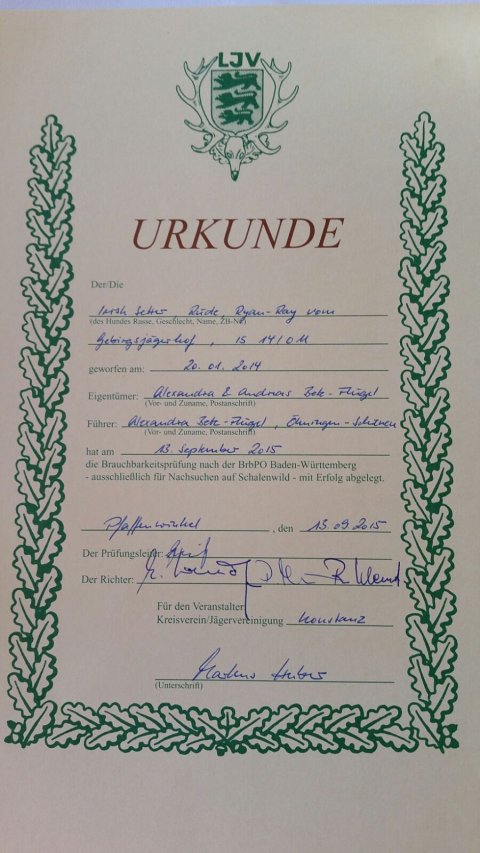 LJV
URKUNDE
Der/Die
Irish Setter, Rüde, Ryan-Ray vom
(des Hundes Rasse, Geschlecht, Name, ZB-Nr.)
Gebirgsjägerhof, IS 14/0
geworfen am: 20.01.2014
Eigentümer: Alexandra & Andreas
(Vor- und Zuname, Postanschrift)
Führer: Alexandra Öhningen-Schienen
(Vor- und Zuname, Postanschrift)
hat am 13. September 2015
die Brauchbarkeitsprüfung nach der BrbPO Baden-Württemberg
- ausschließlich für Nachsuchen auf Schalenwild - mit Erfolg abgelegt.
Pfaffenwinkel, den 13.09.2015
Der Prüfungsleiter:
Der Richter:
Für den Veranstalter
Kreisverein/Jägervereinigung Konstanz
(Unterschrift)